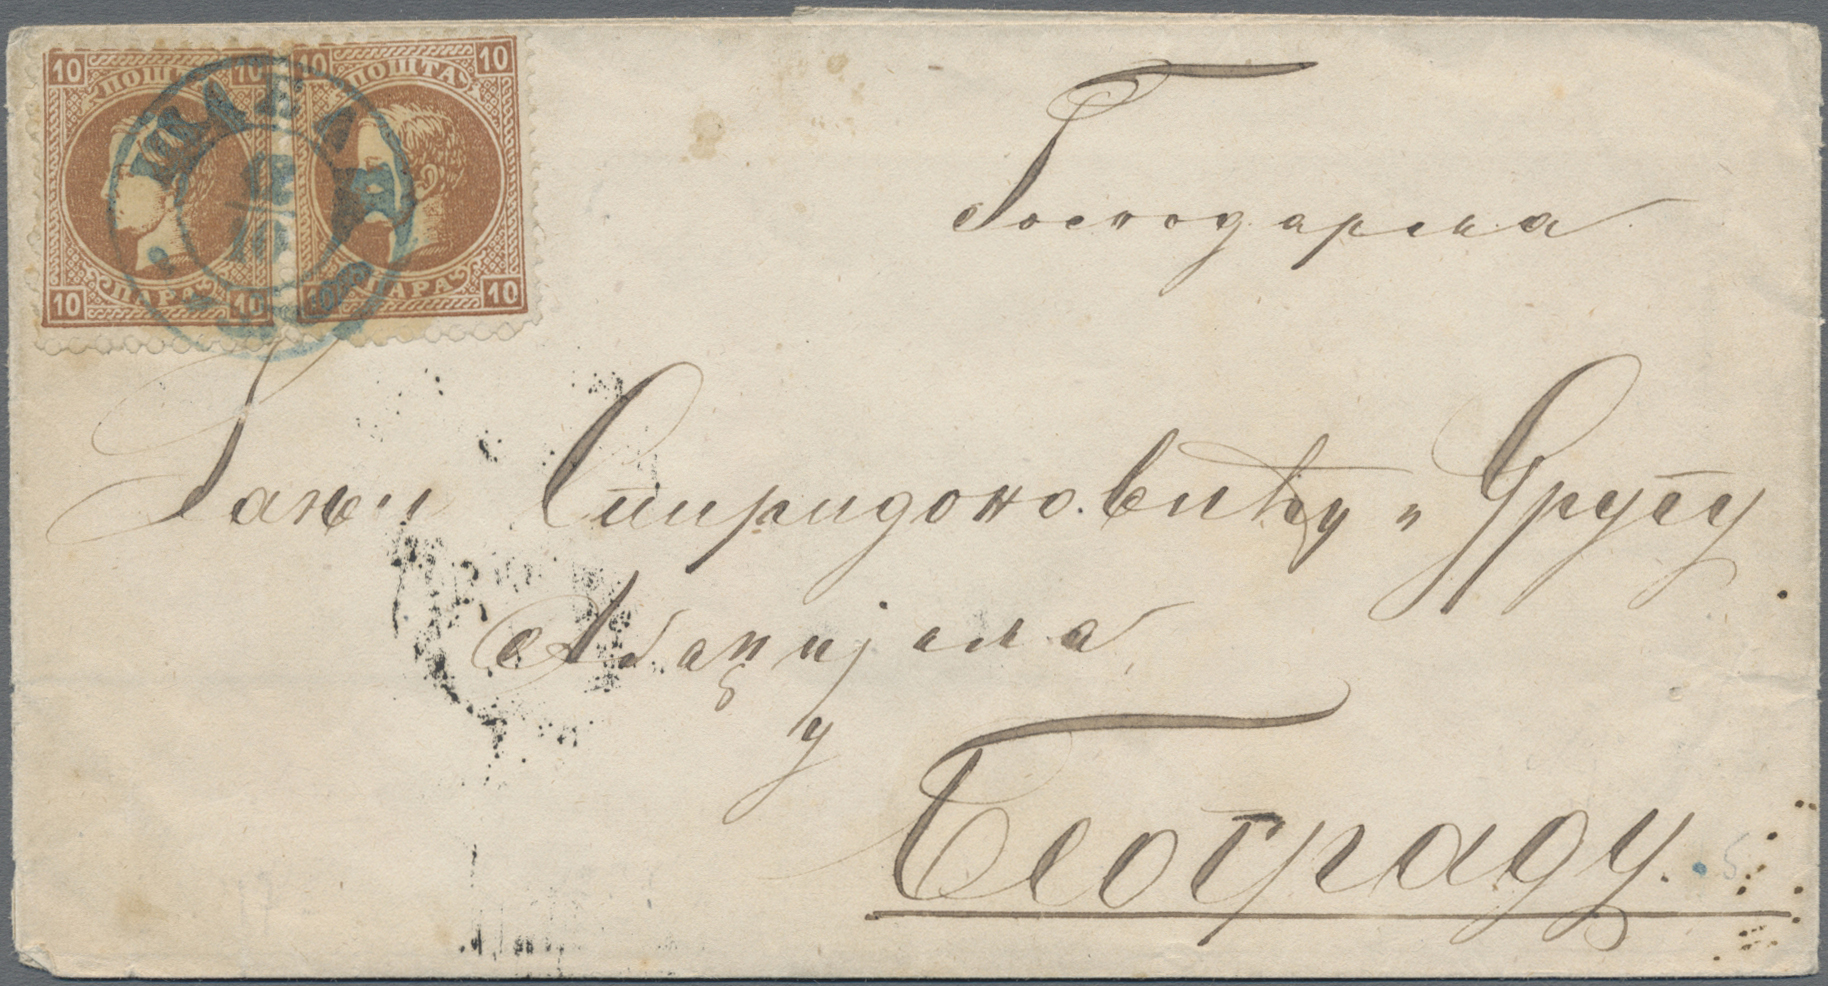 10 ПОШТА 10
10 ПАРА 10
10 ПОШТА 10
10 ПАРА 10
ШАБАЦ
12
10
Господарима
Гањи Спиридоновићу и Другу
Абаџијама
у
Београду.